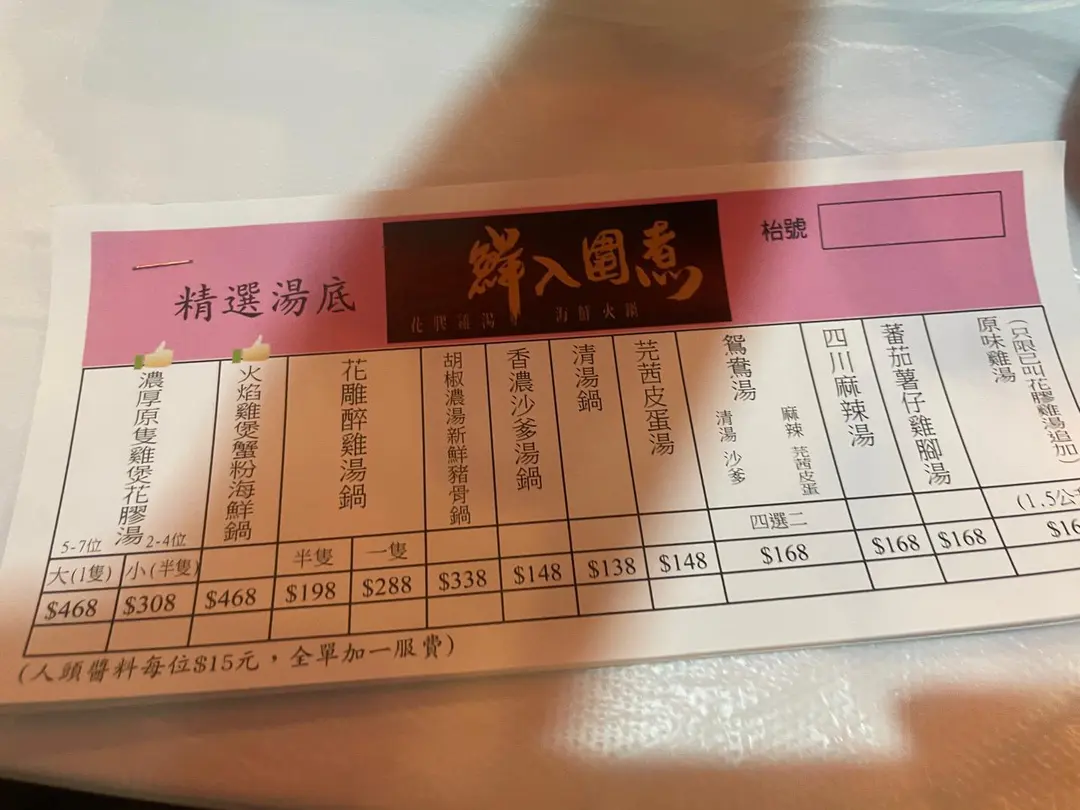 精選湯底
鮮入圍煮
花膠雞湯
海鮮火鍋
枱號
濃厚原隻雞煲花膠湯
5-7位
2-4位
大(1隻)
小(半隻)
$468
$308
火焰雞煲蟹粉海鮮鍋
$468
花雕醉雞湯鍋
半隻
一隻
$198
$288
胡椒濃湯新鮮豬骨鍋
$338
香濃沙爹湯鍋
$148
清湯鍋
$138
芫茜皮蛋湯
$148
鴛鴦湯
清湯 沙爹
麻辣 芫茜皮蛋
四選二
$168
四川麻辣湯
$168
蕃茄薯仔雞腳湯
$168
原味雞湯
(只限已叫花膠雞湯追加)
(1.5公
$16
(人頭醬料每位$15元，全單加一服費)